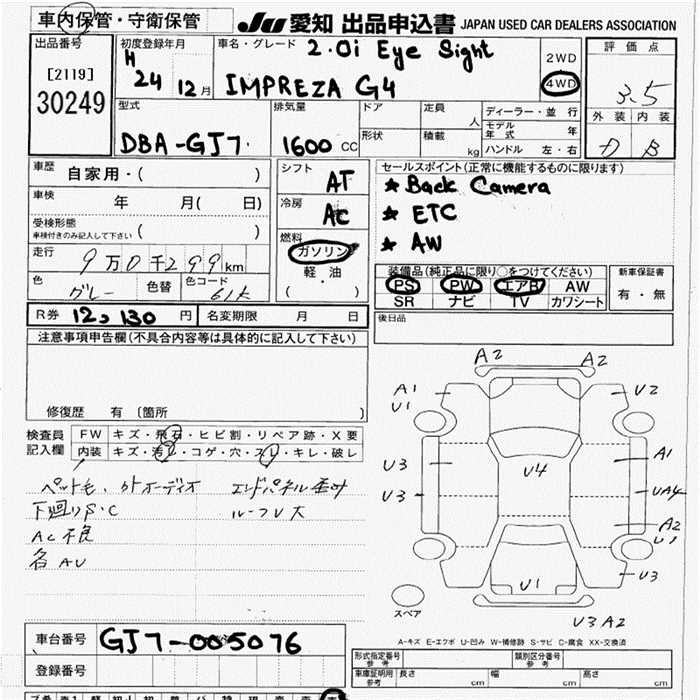 車内保管・守衛保管
JU 愛知 出品申込書 JAPAN USED CAR DEALERS ASSOCIATION
出品番号
[2119]
30249
初度登録年月
H
24 12月
車名・グレード 2.0i Eye Sight
IMPREZA G4
2WD
4WD
評価点
3.5
外装 内装
D B
型式
DBA-GJ7
排気量
1600 CC
ドア
形状
定員 人
積載 kg
ディーラー・並行
モデル年式 年
ハンドル 左・右
車歴 自家用・( )
車検 年 月( 日)
受検形態
車検付きのみ記入して下さい ( )
走行 9万0千299km
色 グレー 色替 色コード 61K
シフト AT
冷房 AC
燃料
ガソリン
軽・油
( )
セールスポイント(正常に機能するものに限ります)
★ Back Camera
★ ETC
★ AW
装備品(純正品に限り○をつけてください)
PS PW エアB AW
SR ナビ TV カワシート
新車保証書
有・無
R券 12,130 円 名変期限 月 日
後日品
注意事項申告欄(不具合内容等は具体的に記入して下さい)
修復歴 有 〔箇所 〕
検査員記入欄
FW キズ・飛石・ヒビ割・リペア跡・X要
内装 キズ・汚レ・コゲ・穴・スレ・キレ・破レ
ペット毛、外オーディオ エンドパネル歪み
下廻りS・C ルーフU大
AC不良
各AU
A2 A2
A1
U1
U2
U3
U4
A1
U3
UA4
A2
U1
U1
U3
U3A2
スペア
A-キズ E-エクボ U-凹み W-補修跡 S-サビ C-腐食 XX-交換済
車台番号 GJ7-005076
登録番号
形式指定番号 参考 類別区分番号 参考
車庫証明用 参考 長さ cm 幅 cm 高さ cm